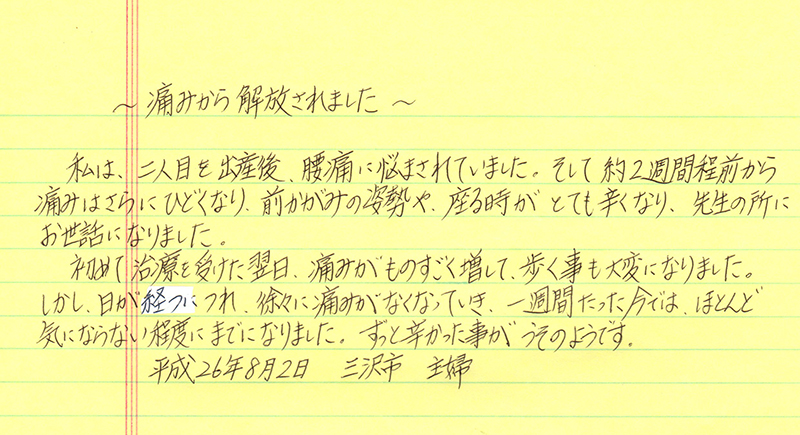 ～ 痛みから解放されました ～
私は、二人目を出産後、腰痛に悩まされていました。そして約2週間程前から
痛みはさらにひどくなり、前かがみの姿勢や、座る時がとても辛くなり、先生の所に
お世話になりました。
初めて治療を受けた翌日、痛みがものすごく増して、歩く事も大変になりました。
しかし、日が経つにつれ、徐々に痛みがなくなっていき、一週間たった今では、ほとんど
気にならない程度にまでになりました。ずっと辛かった事がうそのようです。
平成26年8月2日 三沢市 主婦